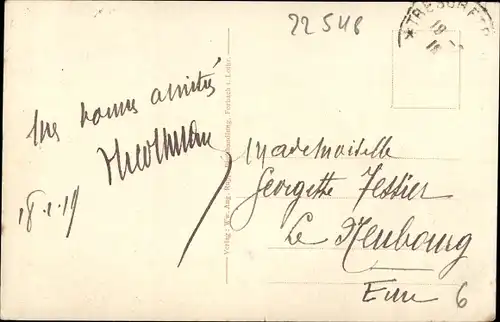 22548
*TRESOR ET P
18
Mes bonnes amitiés
18-1-19
Verlag: Ww. Aug. Buchhandlung, Forbach i. Lothr.
Mademoiselle
Georgette Tessier
Le Neubourg
Eure 6